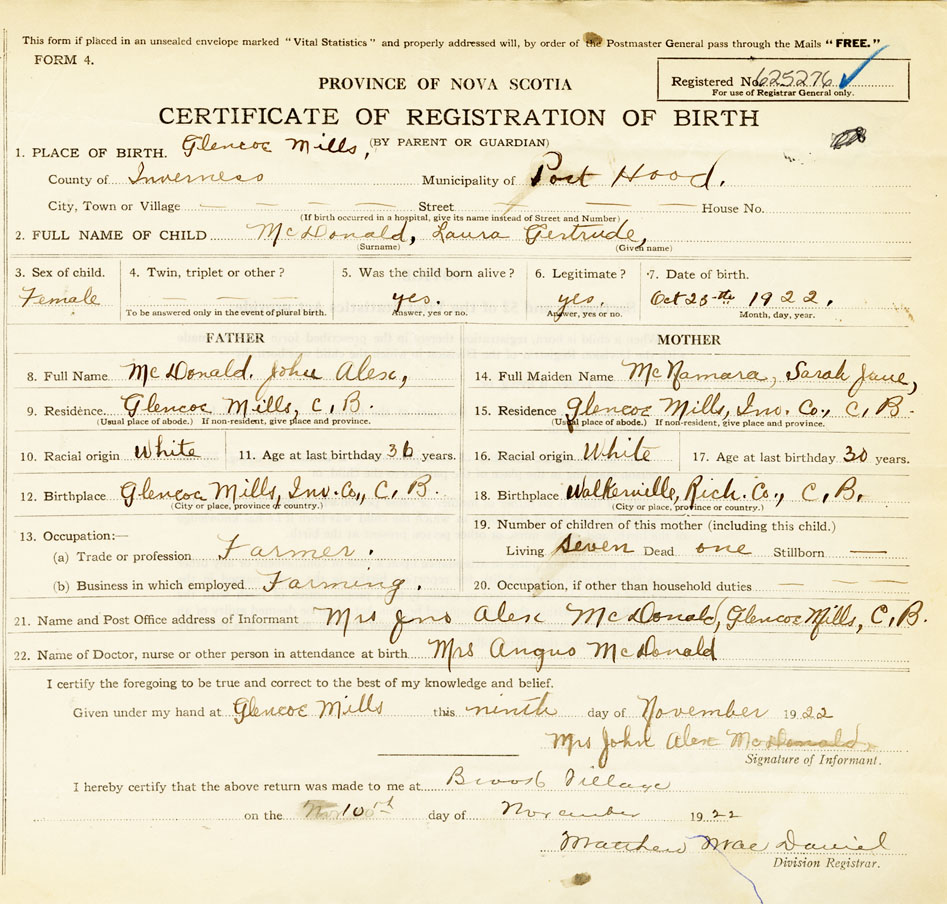 This form if placed in an unsealed envelope marked "Vital Statistics" and properly addressed will, by order of the Postmaster General pass through the Mails "FREE."
FORM 4.
PROVINCE OF NOVA SCOTIA
Registered No. 625276
For use of Registrar General only.
CERTIFICATE OF REGISTRATION OF BIRTH
(BY PARENT OR GUARDIAN)
1. PLACE OF BIRTH. Glencoe Mills,
County of Inverness Municipality of Port Hood.
City, Town or Village — — — — Street — — — House No.
(If birth occurred in a hospital, give its name instead of Street and Number)
2. FULL NAME OF CHILD McDonald, Laura Gertrude,
(Surname) (Given name)
3. Sex of child. 4. Twin, triplet or other? 5. Was the child born alive? 6. Legitimate? 7. Date of birth.
Female — — — yes. yes. Oct 25th 1922.
To be answered only in the event of plural birth. Answer, yes or no. Answer, yes or no. Month, day, year.
FATHER MOTHER
8. Full Name McDonald. John Alex, 14. Full Maiden Name McNamara, Sarah Jane,
9. Residence. Glencoe Mills, C. B. 15. Residence Glencoe Mills, Inv. Co., C. B.
(Usual place of abode.) If non-resident, give place and province. (Usual place of abode.) If non-resident, give place and province.
10. Racial origin White 11. Age at last birthday 36 years. 16. Racial origin White 17. Age at last birthday 30 years.
12. Birthplace Glencoe Mills, Inv. Co., C. B. 18. Birthplace Walkerville, Rich. Co., C. B.
(City or place, province or country.) (City or place, province or country.)
13. Occupation:— 19. Number of children of this mother (including this child.)
(a) Trade or profession Farmer. Living Seven Dead one Stillborn —
(b) Business in which employed Farming. 20. Occupation, if other than household duties — — —
21. Name and Post Office address of Informant Mrs Jno Alex McDonald, Glencoe Mills, C. B.
22. Name of Doctor, nurse or other person in attendance at birth Mrs Angus McDonald
I certify the foregoing to be true and correct to the best of my knowledge and belief.
Given under my hand at Glencoe Mills this ninth day of November 1922
Mrs John Alex McDonald
Signature of Informant.
I hereby certify that the above return was made to me at Brook Village
on the 10th day of November 1922
Matthew MacDaniel
Division Registrar.